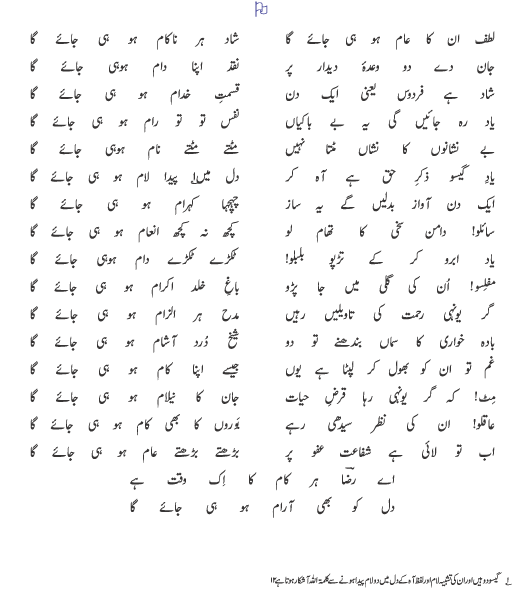 لطف ان کا عام ہو ہی جائے گا شاد ہر ناکام ہو ہی جائے گا
جان دے دو وعدۂ دیدار پر نقد اپنا دام ہوہی جائے گا
شاد ہے فردوس یعنی ایک دن قسمتِ خدام ہو ہی جائے گا
یاد رہ جائیں گی یہ بے باکیاں نفس تو تو رام ہو ہی جائے گا
بے نشانوں کا نشاں مٹتا نہیں مٹتے مٹتے نام ہوہی جائے گا
یادِ گیسو ذکرِ حق ہے آہ کر دل میں پیدا لام ہو ہی جائے گا
ایک دن آواز بدلیں گے یہ ساز چہچہا کہرام ہو ہی جائے گا
سائلو! دامن سخی کا تھام لو کچھ نہ کچھ انعام ہو ہی جائے گا
یاد ابرو کر کے تڑپو بلبلو! ٹکڑے ٹکڑے دام ہوہی جائے گا
مفلِسو! اُن کی گلی میں جا پڑو باغِ خلد اکرام ہو ہی جائے گا
گر یونہی رحمت کی تاویلیں رہیں مدح ہر الزام ہو ہی جائے گا
بادہ خواری کا سماں بندھنے تو دو شیخ دُرد آشام ہو ہی جائے گا
غم تو ان کو بھول کر لپٹا ہے یوں جیسے اپنا کام ہو ہی جائے گا
مِٹ! کہ گر یونہی رہا قرضِ حیات جان کا نیلام ہو ہی جائے گا
عاقلو! ان کی نظر سیدھی رہے بَوروں کا بھی کام ہو ہی جائے گا
اب تو لائی ہے شفاعت عفو پر بڑھتے بڑھتے عام ہو ہی جائے گا
اے رضؔا ہر کام کا اِک وقت ہے
دل کو بھی آرام ہو ہی جائے گا
گیسو دو ہیں اور ان کی تشبیہ لام اور لفظ آہ کے دل میں دو لام پیدا ہونے سے کلمۃ اللہ آشکار ہوتا ہے ۱۲